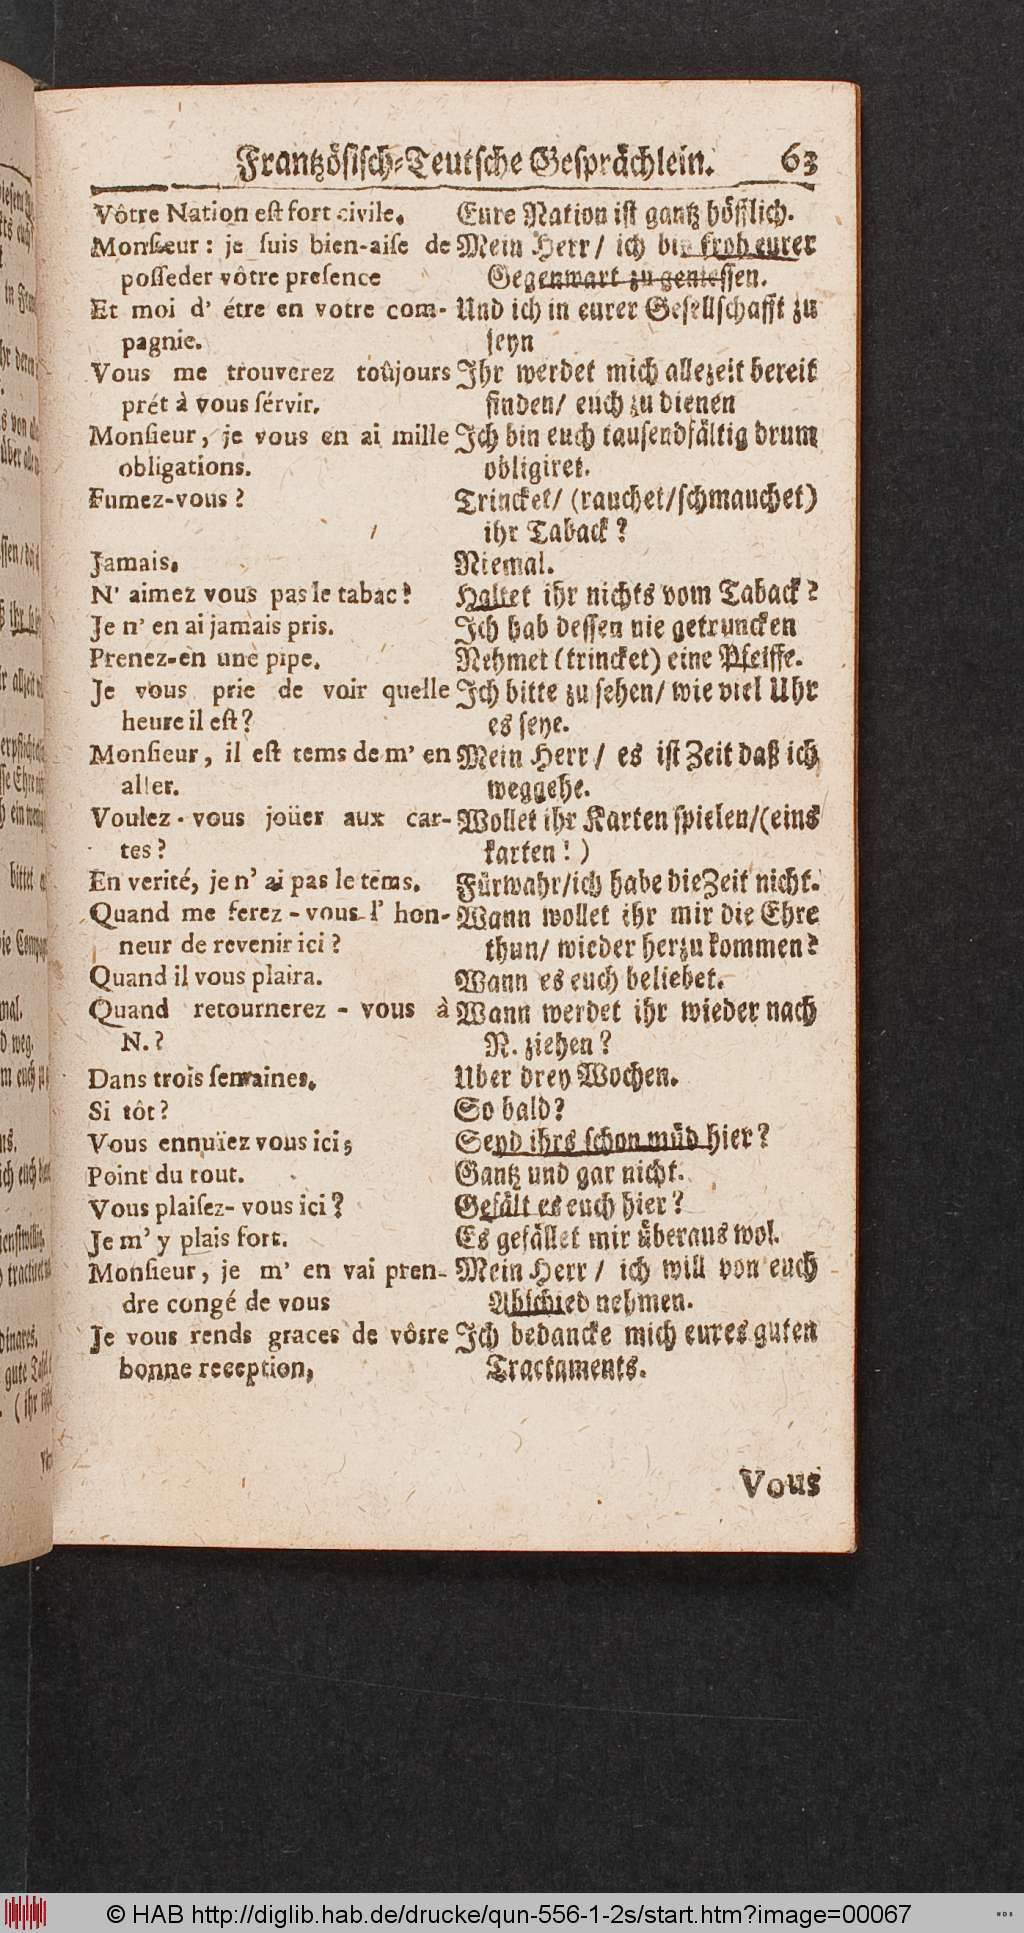 Frantzösisch-Teutsche Gesprächlein. 63
Vôtre Nation eſt fort civile.
Monſieur: je ſuis bien-aiſe de
poſſeder vôtre preſence
Et moi d' étre en votre com-
pagnie.
Vous me trouverez toûjours
prét à vous ſérvir.
Monſieur, je vous en ai mille
obligations.
Fumez-vous?
Jamais.
N' aimez vous pas le tabac?
Je n' en ai jamais pris.
Prenez-en une pipe.
Je vous prie de voir quelle
heure il eſt?
Monſieur, il eſt tems de m' en
aller.
Voulez-vous joüer aux car-
tes?
En verité, je n' ai pas le tems.
Quand me ferez-vous l' hon-
neur de revenir ici?
Quand il vous plaira.
Quand retournerez-vous à
N.?
Dans trois ſemaines.
Si tôt?
Vous ennuïez vous ici;
Point du tout.
Vous plaiſez-vous ici?
Je m' y plais fort.
Monſieur, je m' en vai pren-
dre congé de vous
Je vous rends graces de vôtre
bonne reception,
Eure Nation iſt gantz höfflich.
Mein Herr/ ich bin froh eurer
Gegenwart zu genieſſen.
Und ich in eurer Geſellſchafft zu
ſeyn
Ihr werdet mich allezeit bereit
finden/ euch zu dienen
Ich bin euch tauſendfältig drum
obligiret.
Trincket/ (rauchet/ſchmauchet)
ihr Taback?
Niemal.
Haltet ihr nichts vom Taback?
Ich hab deſſen nie getruncken
Nehmet (trincket) eine Pfeiffe.
Ich bitte zu ſehen/ wie viel Uhr
es ſeye.
Mein Herr/ es iſt Zeit daß ich
weggehe.
Wollet ihr Karten ſpielen/(eins
karten!)
Fürwahr/ich habe die Zeit nicht.
Wann wollet ihr mir die Ehre
thun/ wieder herzu kommen?
Wann es euch beliebet.
Wann werdet ihr wieder nach
N. ziehen?
Uber drey Wochen.
So bald?
Seyd ihrs ſchon müd hier?
Gantz und gar nicht.
Gefält es euch hier?
Es gefället mir überaus wol.
Mein Herr/ ich will von euch
Abſchied nehmen.
Ich bedancke mich eures guten
Tractaments.
Vous
© HAB http://diglib.hab.de/drucke/qun-556-1-2s/start.htm?image=00067